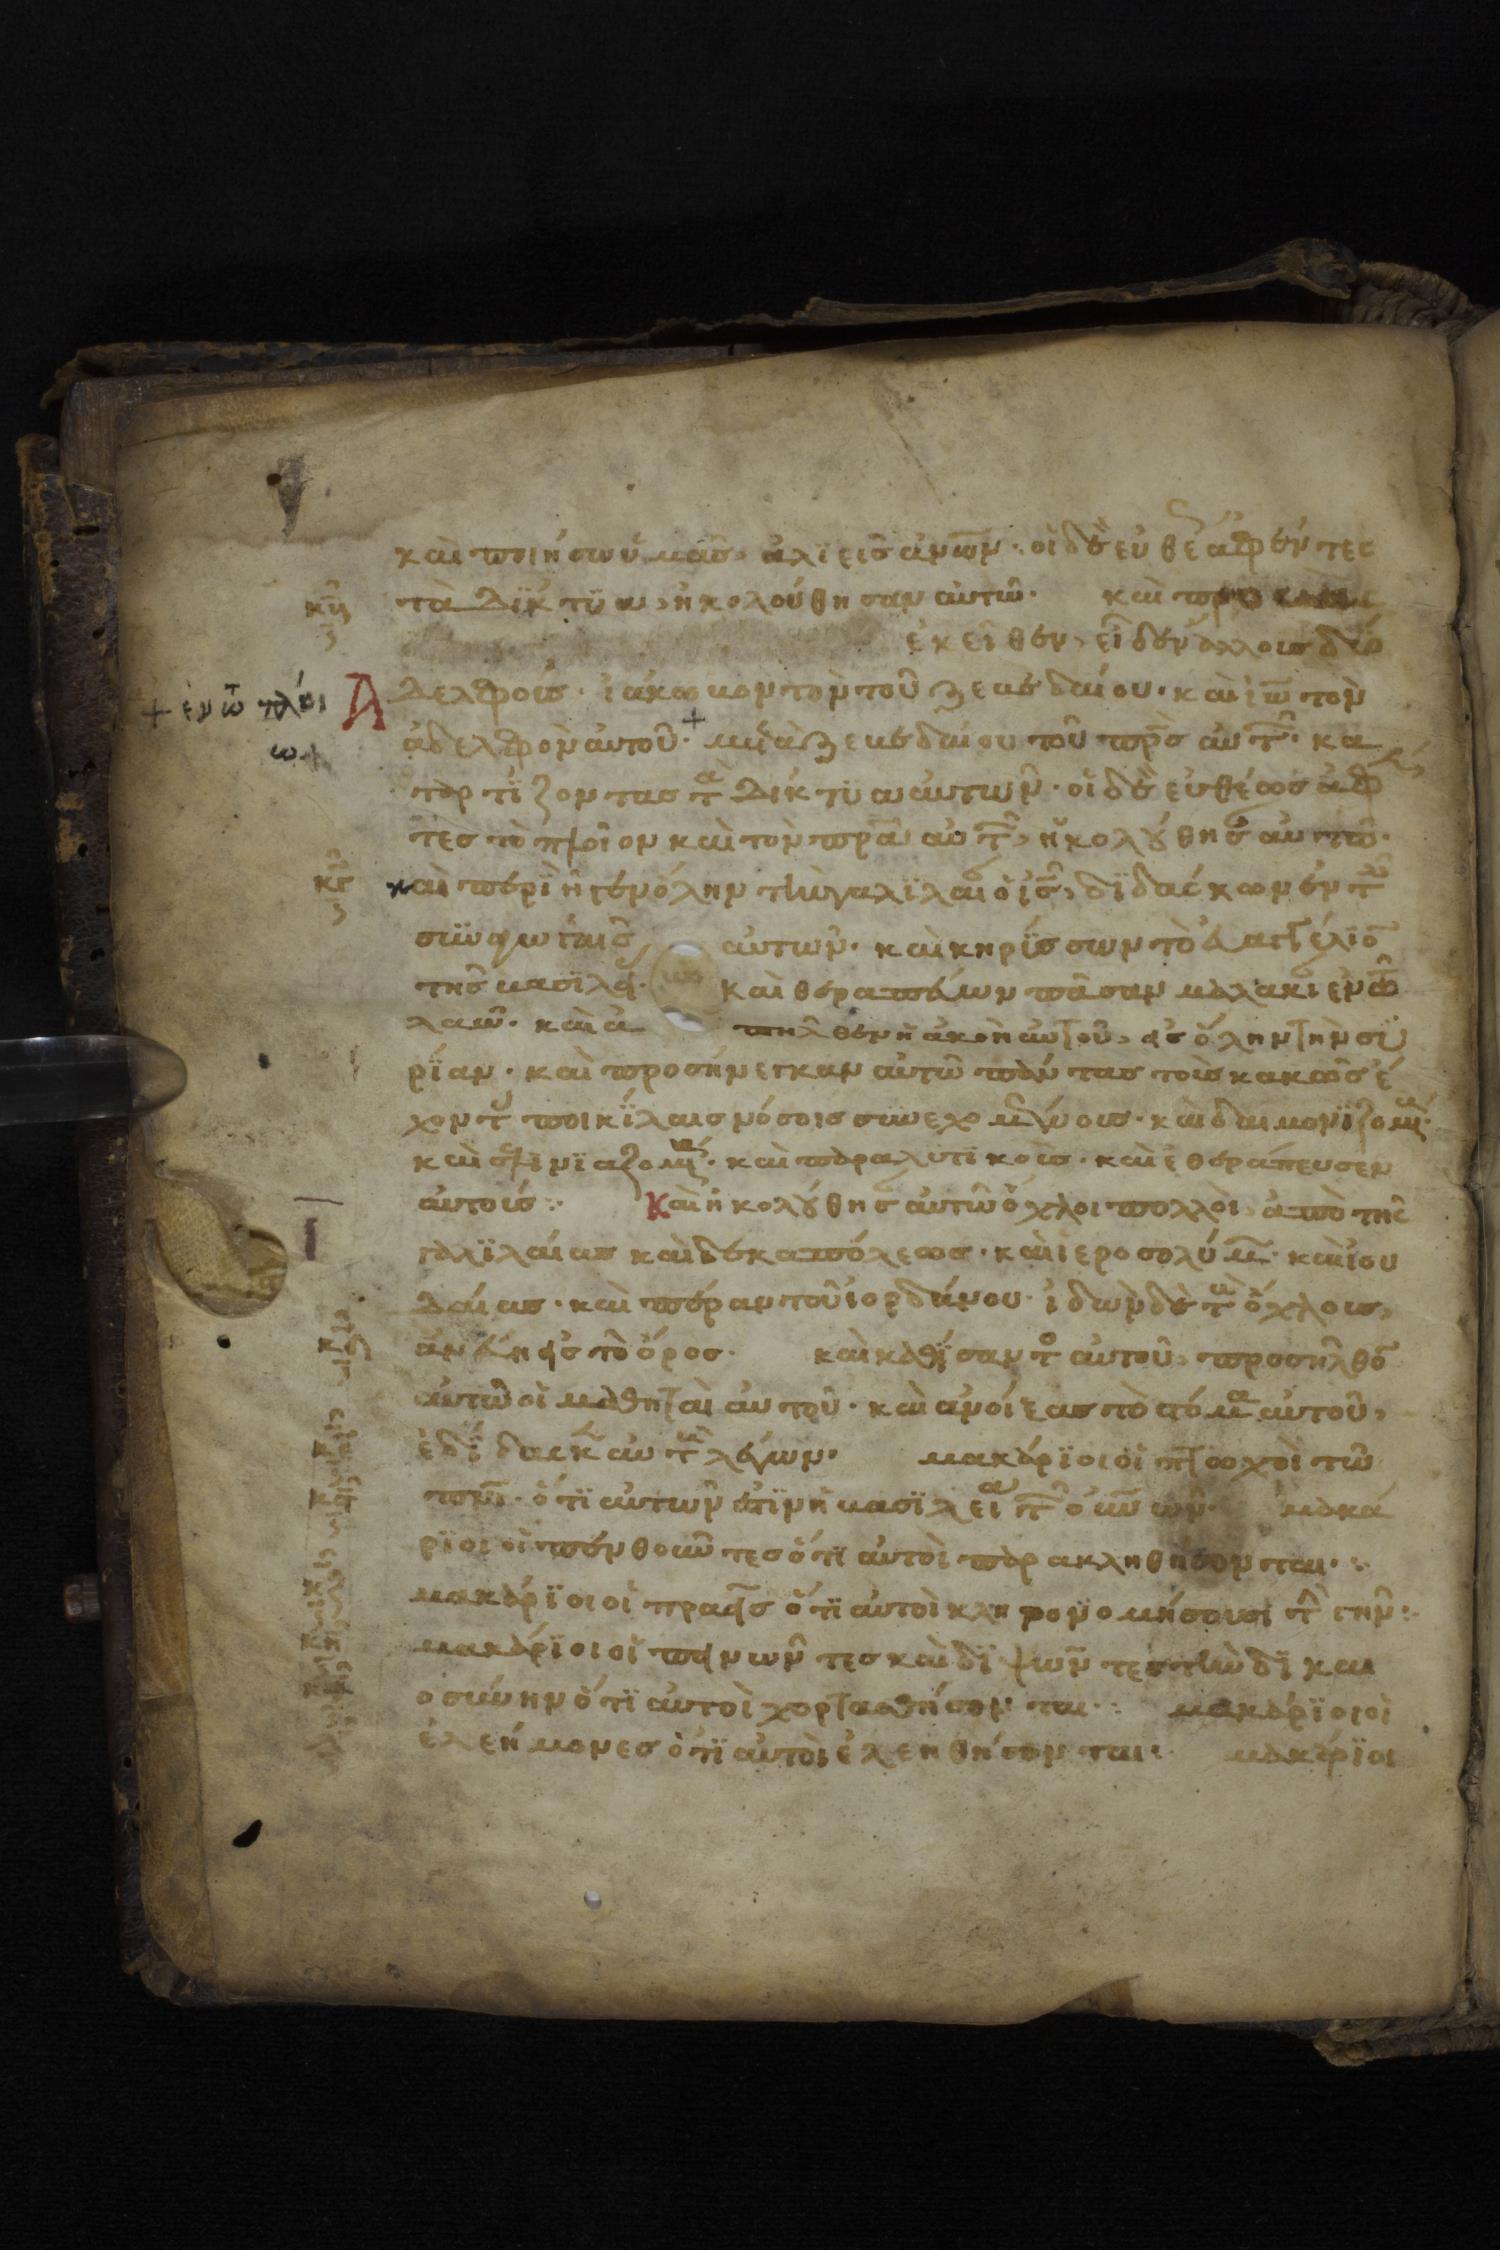 καὶ ποιήσω ὑμᾶς, ἁλϊεῖς ἀν̅ων̅· οἱ δὲ εὐθέ ἀφέντες
τὰ δΐκτϋα, ἠκολούθησαν αὐτῶ· καὶ
ἐκεῖθεν, εἶδεν ἄλλους δύο ἀ
δελφοὺς· ἰάκωβον τὸν τοῦ ζεβεδαίου· καὶ ἰω̅ τὸν
ἀδελφὸν αὐτοῦ· μετὰ ζεβεδαίου τοῦ πρ̅σ αὐτ· κα
ταρτΐζοντας τ δίκτϋα αὐτῶν· οἱ δὲ εὐθέως ἀφέν
τες τὸ πλοῖον καὶ τὸν πρ̅α αὐτ, ἠκολούθησ αὐτῶ·
καὶ περιῆγεν ὅλην τὴν γαλϊλαί ὁ ισ̅, δϊδάσκων ἐν τ
συναγωγαῖς αὐτῶν· καὶ κηρΰσσων τὸ εὐαγγέλϊο
τῆς βασϊλεί· καὶ θεραπεύων πᾶσαν μαλακί ἐν τῶ
λαῶ· καὶ ἀ πῆλθεν ἡ ἀκοὴ αὐτοῦ, εἰς ὅλην τὴν συ
ρΐαν· καὶ προσήνεγκαν αὐτῶ πάντας τοὺς κακῶς ἔ
χοντ ποικΐλαις νόσοις συνεχομένους· καὶ δαιμονϊζομ·
καὶ σεληνϊαζομ· καὶ παραλυτϊκοὺς· καὶ ἐθεράπευσεν
αὐτούς:· Καὶ ἠκολούθησ αὐτῶ ὄχλοι πολλοὶ, ἀπὸ τῆς
γαλϊλαίας καὶ δεκαπόλεως· καὶ ἱεροσολύμ· καὶ ἰου
δαίας· καὶ πέραν τοῦ ἰορδάνου· ἰδὼν δὲ τ ὄχλους,
ἀνέβη εἰς τὸ ὄρος· καὶ καθΐσαντο αὐτοῦ, προσῆλθο
αὐτῶ οἱ μαθηταὶ αὐτοῦ· καὶ ἀνοίξας τὸ στόμα αὐτοῦ,
ἐδΐδασκ αὐτ λέγων· μακάρϊοι οἱ πτωχοὶ τῶ
πνι̅· ὅτϊ αὐτῶν ἐστϊν ἡ βασϊλεία τ οὐν̅ων̅· μακά
ρϊοι οἱ πενθοῦντες ὅτϊ αὐτοὶ παρακληθήσονται·:
μακάρϊοι οἱ πραεῖς ὅτϊ αὐτοὶ κληρονομήσουσι τ γῆν:·
μακάρϊοι οἱ πεινῶντες καὶ δϊψῶντες τὴν δϊκαι
οσύνην ὅτϊ αὐτοὶ χορτασθήσονται·: μακάρϊοι οἱ
ἐλεήμονες ὅτϊ αὐτοὶ ἐλεηθήσονται· μακάρϊοι